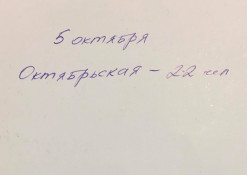 5 октября
Октябрьская – 22 чел